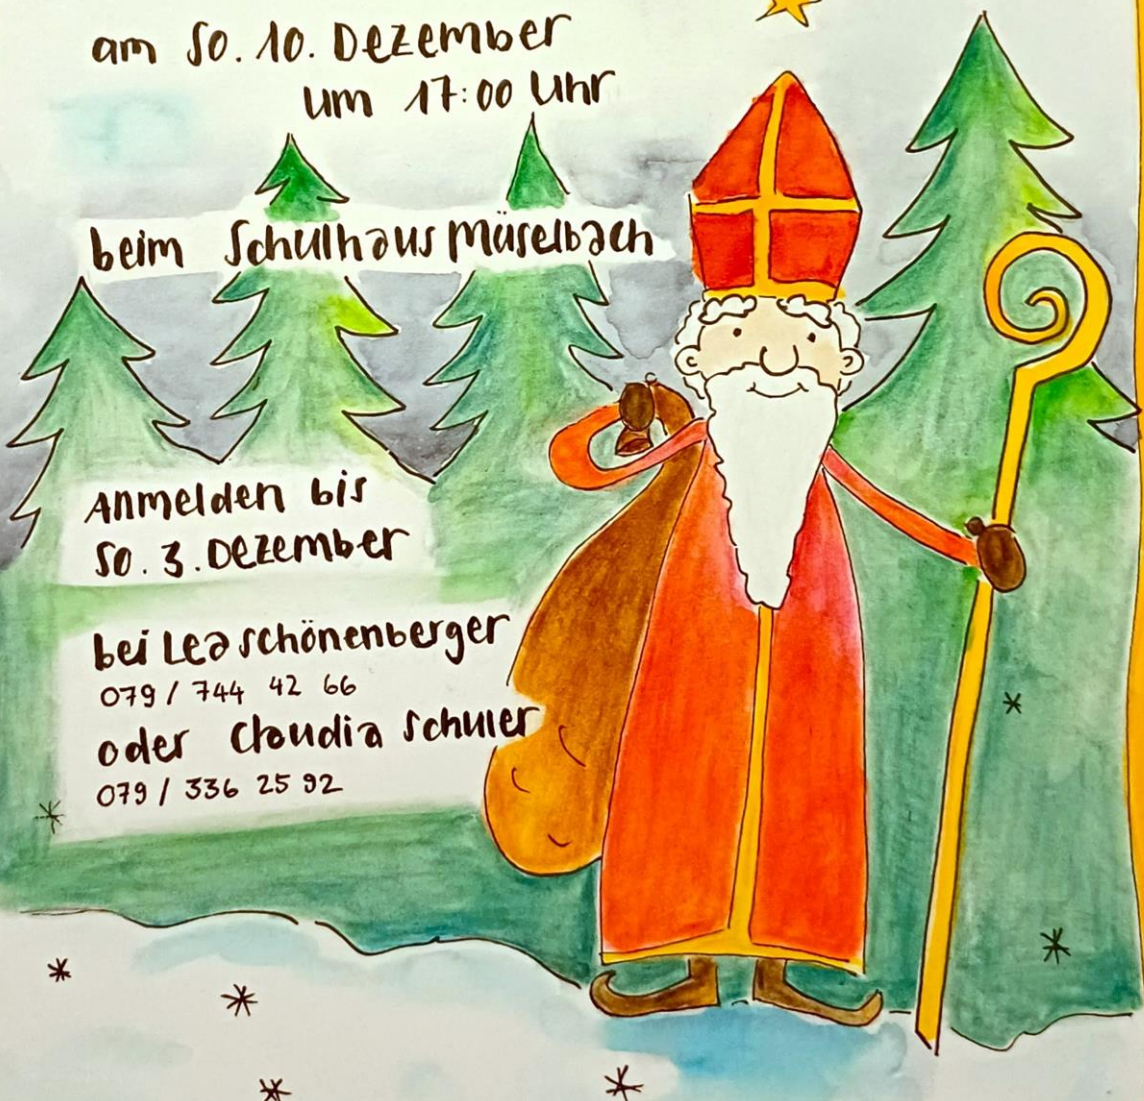 am So. 10. Dezember
um 17:00 Uhr
beim Schulhaus Müselbach
Anmelden bis
So. 3. Dezember
bei Lea Schönenberger
079 / 744 42 66
oder Claudia Schuler
079 / 336 25 92